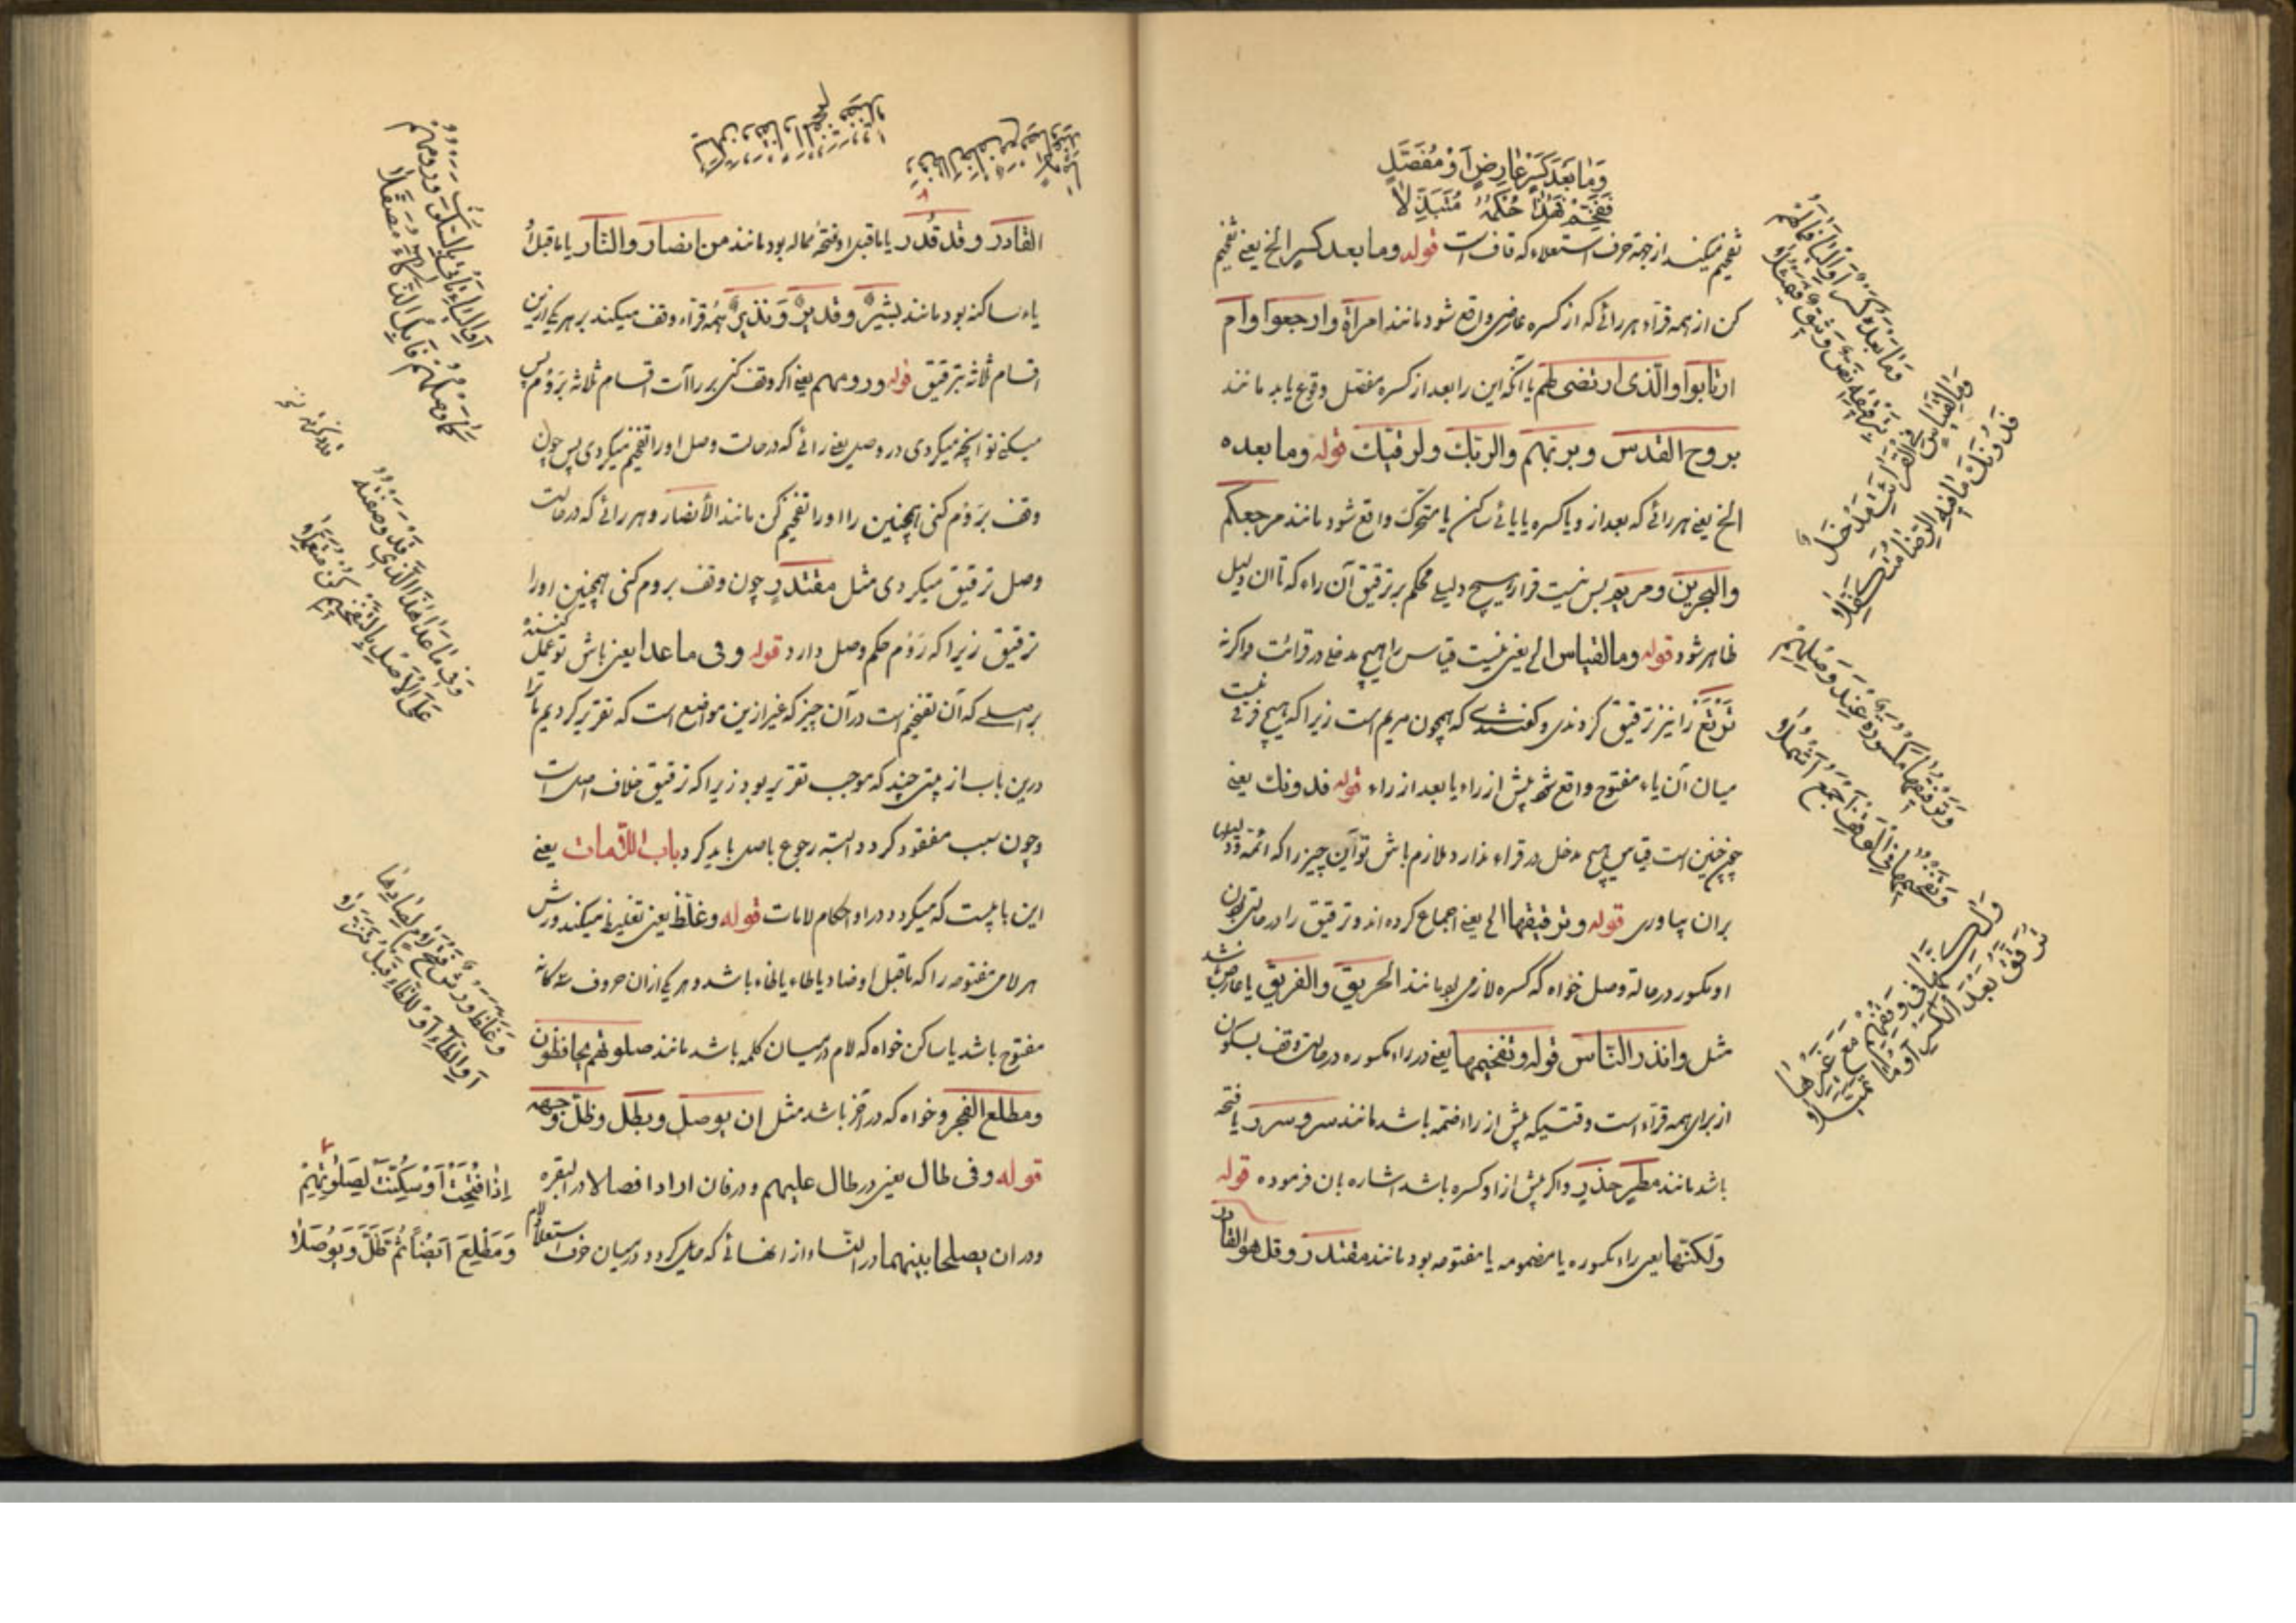 وَمَا بَعْدَ كَسْرٍ عَارِضٍ أَوْ مُفَصَّلٍ
فَفَخِّمْ فَهَذَا حُكْمُهُ مُتَبَذِّلَا
تفخیم میکنند از جهة حرف استعلاء که قاف است قوله وما بعد کسر الخ یعنی تفخیم
کن از همه قرآء هر رائی که از کسره عارضی واقع شود مانند امرأة وارجعوا وام
ارتابوا والّذی ارتضی لهم یا آنکه این را بعد از کسره مفصّل وقوع یابد مانند
بروح القدس وبربّهم والربّك ولرقیّك قوله وما بعده
الخ یعنی هر رائی که بعد از و یا کسره یا یائی ساکن یا متحرک واقع شود مانند مرجعکم
والبحرین ومریم پس نیست قرا را هیچ دلیلی محکم بر ترقیق آن راء که تا ان دلیل
ظاهر شود قوله وما لقیاس الی یعنی نیست قیاس را هیچ مدخلی در قرائت واکرنه
نرتع را نیز ترقیق کردندی وکفتندی که همچون مریم است زیرا که هیچ فرقی نیست
میان آن یاء مفتوح واقع شود پیش از راء یا بعد از راء قوله فدونك یعنی
چون چنین است قیاس هیچ مدخل در قراء ندارد ملازم باش تو آن چیز را که ائمه
بران پیاوری قوله وترقیقها الی یعنی اجماع کرده اند وترقیق را در حالتی بودن
او مکسور در حالة وصل خواه که کسره لازمی بود مانند الحریق والفریق یا عارض باشد
مثل وانذر النّاس قوله وتفخیمها یعنی در راء مکسوره در حالت وقف بسکون
از برای همه قرآء است وقتیکه پیش از راء ضمه باشد مانند سر وسرر یا فتحه
باشد مانند مطر حذر واکر پیش از او کسره باشد اشاره بان فرموده قوله
ولکنّها یعنی راء مکسوره یا مضمومه یا مفتوحه بود مانند مقتدر وقل هو القادر
وَمَا بَعْدَهُ كَسْرٌ أَوِ الْيَا فَمَا لَهُمْ
بِتَرْقِيقِهِ نَصٌّ وَثِيقٌ فَيَمْثُلَا
وَمَا لِقِيَاسٍ فِي الْقِرَاءَةِ مَدْخَلٌ
فَدُونَكَ مَا فِيهِ الرِّضَا مُتَكَفِّلَا
وَتَرْقِيقُهَا مَكْسُورَةً عِنْدَ وَصْلِهِمْ
وَتَفْخِيمُهَا فِي الْوَقْفِ أَجْمَعُ أَشْمُلَا
وَلَكِنَّهَا فِي وَقْفِهِمْ مَعَ غَيْرِهَا
تُرَقَّقُ بَعْدَ الْكَسْرِ أَوْ مَا تَمَيَّلَا
القادر وقد قُدر یا ما قبل او فتحهٔ مماله بود مانند من انصار والنّار یا ما قبل او
یاء ساکنه بود مانند بشیر وقدیر ونذیر همه قرآء وقف میکنند بر هر یکی ازین
اقسام ثلاثه بترقیق قوله ورومهم یعنی اکر وقف کنی بر راات اقسام ثلاثه برَوْم پس
میکنی تو آنچه میکردی در وصل یعنی رائی که در حالت وصل او را تفخیم میکردی پس چون
وقف برَوْم کنی همچنین را او را تفخیم کن مانند الأنصار وهر رائی که در حالت
وصل ترقیق میکردی مثل مقتدر چون وقف بروم کنی همچنین او را
ترقیق زیرا که رَوْم حکم وصل دارد قوله وفی ما عدا یعنی باش تو عمل کننده
بر اصلی که آن تفخیم است در آن چیز که غیر ازین مواضع است که تقریر کردیم ما ترا
درین باب از بیتی چند که موجب تقریر بود زیرا که ترقیق خلاف اصل است
وچون سبب مفقود کردد البته رجوع باصل باید کرد باب اللّامات یعنی
این بابیست که میکردد در او احکام لامات قوله وغلّظ یعنی تغلیظ میکند ورش
هر لام مفتوحه را که ما قبل او صاد یا طاء یا ظاء باشد وهر یکی از ان حروف سه کانه
مفتوح باشد یا ساکن خواه که لام در میان کلمه باشد مانند صلوتهم یحافظون
ومطلع الفجر وخواه که در آخر باشد مثل ان یوصل وبطل وظلّ وجهه
قوله وفی طال یعنی در طال علیهم ودر فان ارادا فصالا در البقره
ودر ان یصلحا بینهما در النّساء از الفائی که حایل کردد در میان حرف استعلا ولام
أَوِ الْيَاءِ تَأْتِي بِالسُّكُونِ وَرَوْمُهُمْ
كَمَا وَصْلُهُمْ فَابْلُ الذَّكَاءَ مُصَقَّلَا
وَفِي مَا عَدَا هَذَا الَّذِي قَدْ وَصَفْتُهُ
عَلَى الْأَصْلِ بِالتَّفْخِيمِ كُنْ مُتَعَمِّلَا
وَغَلَّظَ وَرْشٌ فَتْحَ لَامٍ لِصَادِهَا
أَوِ الطَّاءِ أَوْ لِلظَّاءِ قَبْلُ تَنَزُّلَا
إِذَا فُتِحَتْ أَوْ سُكِّنَتْ كَصَلَوتِهِمْ
وَمَطْلَعِ أَيْضًا ثُمَّ ظَلَّ وَيُوصَلَا